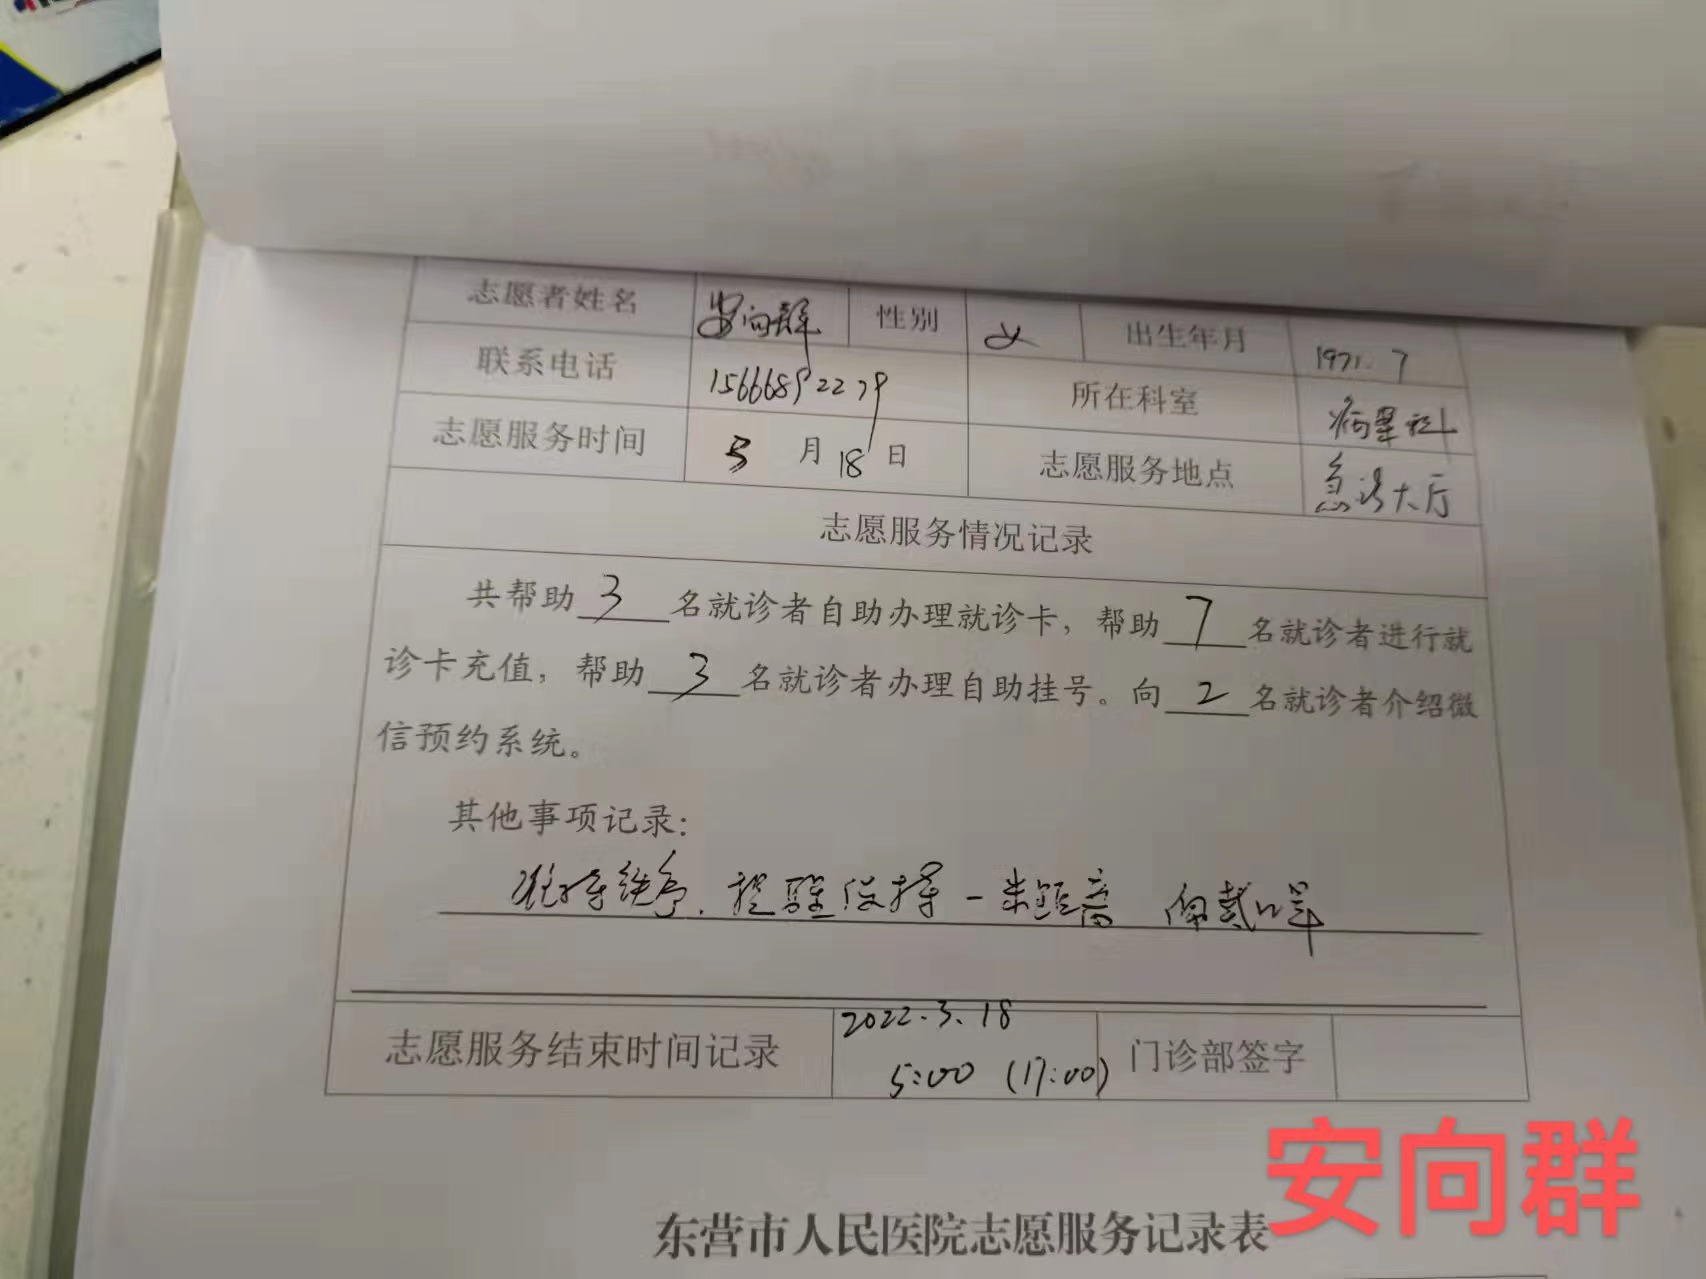 志愿者姓名 安向群 性别 女 出生年月 1971.7
联系电话 15666892279 所在科室 病案科
志愿服务时间 3月18日 志愿服务地点 急诊大厅
志愿服务情况记录
共帮助3名就诊者自助办理就诊卡，帮助7名就诊者进行就
诊卡充值，帮助3名就诊者办理自助挂号。向2名就诊者介绍微
信预约系统。
其他事项记录：
维持秩序.提醒保持一米距离 佩戴口罩
志愿服务结束时间记录 2022.3.18 门诊部签字
5:00 (17:00)
安向群
东营市人民医院志愿服务记录表